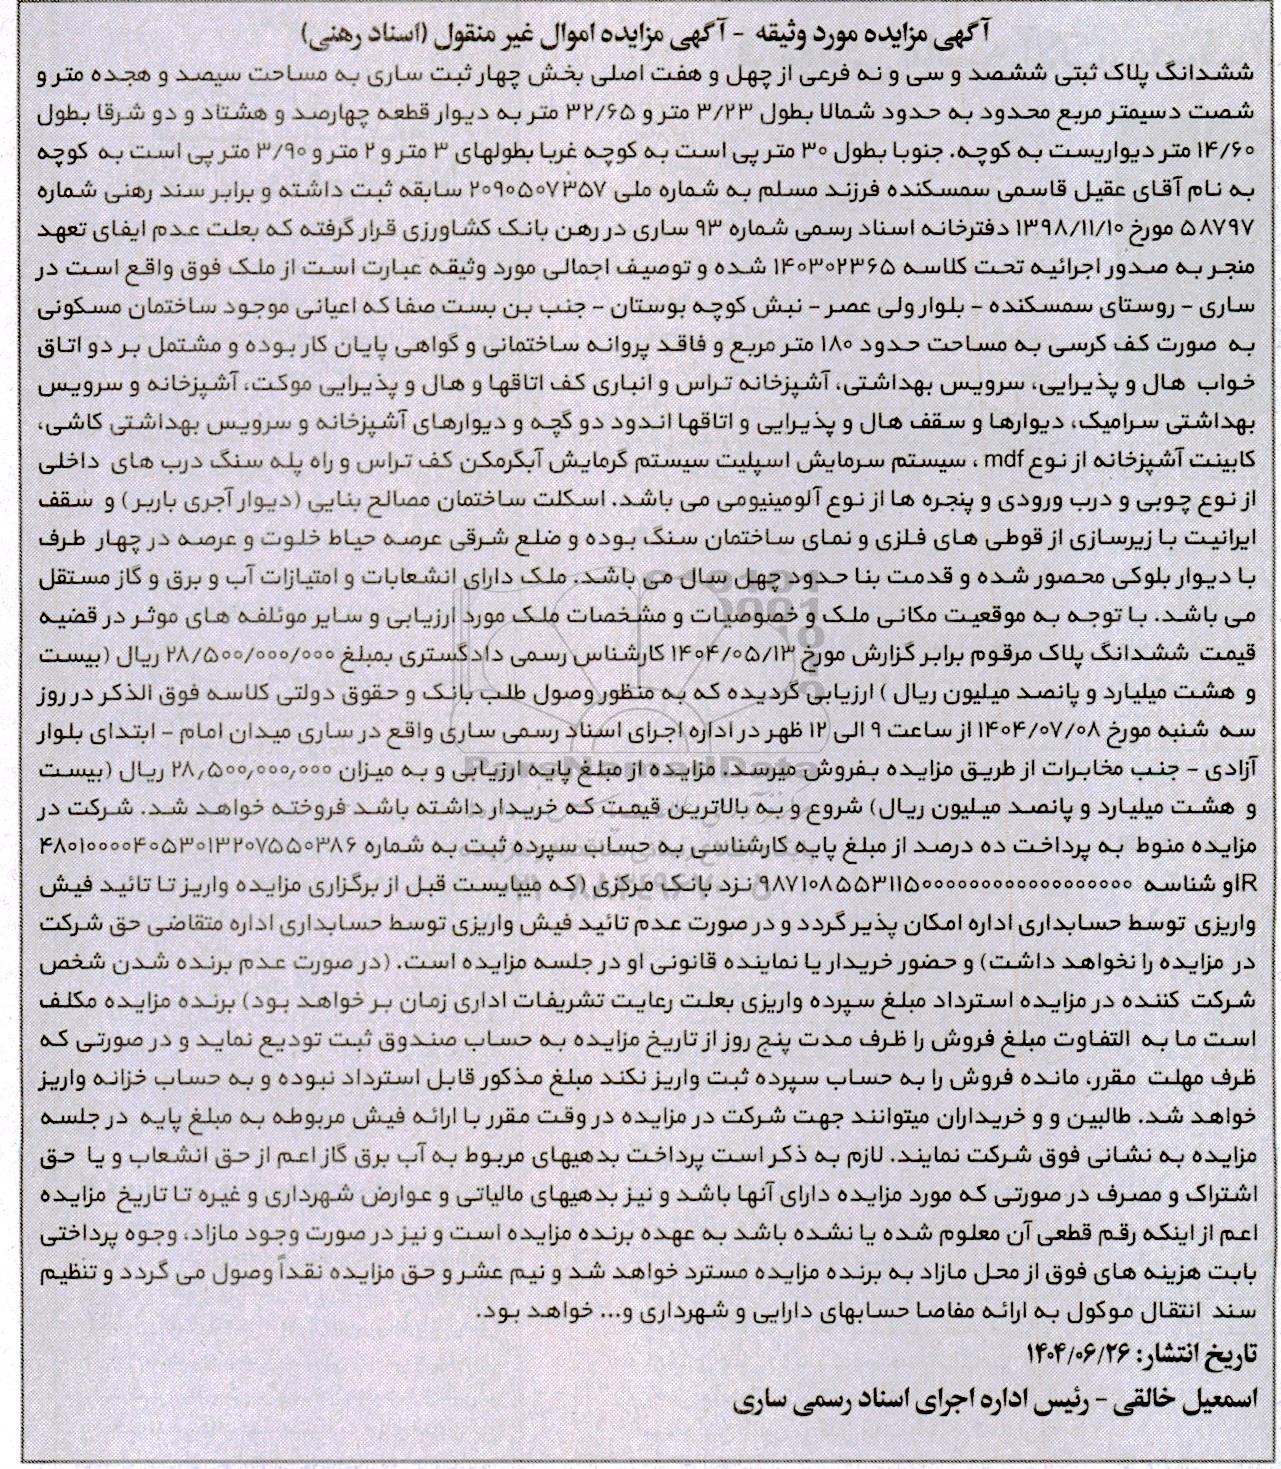 آگهی مزایده مورد وثیقه - آگهی مزایده اموال غیر منقول (اسناد رهنی)
ششدانگ پلاک ثبتی ششصد و سی و نه فرعی از چهل و هفت اصلی بخش چهار ثبت ساری به مساحت سیصد و هجده متر و
شصت دسیمتر مربع محدود به حدود شمالا بطول ۳/۲۳ متر و ۳۲/۶۵ متر به دیوار قطعه چهارصد و هشتاد و دو شرقا بطول
۱۴/۶۰ متر دیواریست به کوچه. جنوبا بطول ۳۰ متر پی است به کوچه غربا بطولهای ۳ متر و ۲ متر و ۳/۹۰ متر پی است به کوچه
به نام آقای عقیل قاسمی سمسکنده فرزند مسلم به شماره ملی ۲۰۹۰۵۰۷۳۵۷ سابقه ثبت داشته و برابر سند رهنی شماره
۵۸۷۹۷ مورخ ۱۳۹۸/۱۱/۱۰ دفترخانه اسناد رسمی شماره ۹۳ ساری در رهن بانک کشاورزی قرار گرفته که بعلت عدم ایفای تعهد
منجر به صدور اجرائیه تحت کلاسه ۱۴۰۳۰۲۳۶۵ شده و توصیف اجمالی مورد وثیقه عبارت است از ملک فوق واقع است در
ساری - روستای سمسکنده - بلوار ولی عصر - نبش کوچه بوستان - جنب بن بست صفا که اعیانی موجود ساختمان مسکونی
به صورت کف کرسی به مساحت حدود ۱۸۰ متر مربع و فاقد پروانه ساختمانی و گواهی پایان کار بوده و مشتمل بر دو اتاق
خواب هال و پذیرایی، سرویس بهداشتی، آشپزخانه تراس و انباری کف اتاقها و هال و پذیرایی موکت، آشپزخانه و سرویس
بهداشتی سرامیک، دیوارها و سقف هال و پذیرایی و اتاقها اندود دو گچه و دیوارهای آشپزخانه و سرویس بهداشتی کاشی،
کابینت آشپزخانه از نوع mdf ، سیستم سرمایش اسپلیت سیستم گرمایش آبگرمکن کف تراس و راه پله سنگ درب های داخلی
از نوع چوبی و درب ورودی و پنجره ها از نوع آلومینیومی می باشد. اسکلت ساختمان مصالح بنایی (دیوار آجری باربر) و سقف
ایرانیت با زیرسازی از قوطی های فلزی و نمای ساختمان سنگ بوده و ضلع شرقی عرصه حیاط خلوت و عرصه در چهار طرف
با دیوار بلوکی محصور شده و قدمت بنا حدود چهل سال می باشد. ملک دارای انشعابات و امتیازات آب و برق و گاز مستقل
می باشد. با توجه به موقعیت مکانی ملک و خصوصیات و مشخصات ملک مورد ارزیابی و سایر موئلفه های موثر در قضیه
قیمت ششدانگ پلاک مرقوم برابر گزارش مورخ ۱۴۰۴/۰۵/۱۳ کارشناس رسمی دادگستری بمبلغ ۲۸/۵۰۰/۰۰۰/۰۰۰ ریال (بیست
و هشت میلیارد و پانصد میلیون ریال ) ارزیابی گردیده که به منظور وصول طلب بانک و حقوق دولتی کلاسه فوق الذکر در روز
سه شنبه مورخ ۱۴۰۴/۰۷/۰۸ از ساعت ۹ الی ۱۲ ظهر در اداره اجرای اسناد رسمی ساری واقع در ساری میدان امام - ابتدای بلوار
آزادی - جنب مخابرات از طریق مزایده بفروش میرسد. مزایده از مبلغ پایه ارزیابی و به میزان ۲۸٫۵۰۰٫۰۰۰٫۰۰۰ ریال (بیست
و هشت میلیارد و پانصد میلیون ریال) شروع و به بالاترین قیمت که خریدار داشته باشد فروخته خواهد شد. شرکت در
مزایده منوط به پرداخت ده درصد از مبلغ پایه کارشناسی به حساب سپرده ثبت به شماره ۴۸۰۱۰۰۰۰۴۰۵۳۰۱۳۲۰۷۵۵۰۳۸۶
IRو شناسه ۹۸۷۱۰۸۵۵۳۱۱۵۰۰۰۰۰۰۰۰۰۰۰۰۰۰۰۰۰۰ نزد بانک مرکزی (که میبایست قبل از برگزاری مزایده واریز تا تائید فیش
واریزی توسط حسابداری اداره امکان پذیر گردد و در صورت عدم تائید فیش واریزی توسط حسابداری اداره متقاضی حق شرکت
در مزایده را نخواهد داشت) و حضور خریدار یا نماینده قانونی او در جلسه مزایده است. (در صورت عدم برنده شدن شخص
شرکت کننده در مزایده استرداد مبلغ سپرده واریزی بعلت رعایت تشریفات اداری زمان بر خواهد بود) برنده مزایده مکلف
است ما به التفاوت مبلغ فروش را ظرف مدت پنج روز از تاریخ مزایده به حساب صندوق ثبت تودیع نماید و در صورتی که
ظرف مهلت مقرر، مانده فروش را به حساب سپرده ثبت واریز نکند مبلغ مذکور قابل استرداد نبوده و به حساب خزانه واریز
خواهد شد. طالبین و و خریداران میتوانند جهت شرکت در مزایده در وقت مقرر با ارائه فیش مربوطه به مبلغ پایه در جلسه
مزایده به نشانی فوق شرکت نمایند. لازم به ذکر است پرداخت بدهیهای مربوط به آب برق گاز اعم از حق انشعاب و یا حق
اشتراک و مصرف در صورتی که مورد مزایده دارای آنها باشد و نیز بدهیهای مالیاتی و عوارض شهرداری و غیره تا تاریخ مزایده
اعم از اینکه رقم قطعی آن معلوم شده یا نشده باشد به عهده برنده مزایده است و نیز در صورت وجود مازاد، وجوه پرداختی
بابت هزینه های فوق از محل مازاد به برنده مزایده مسترد خواهد شد و نیم عشر و حق مزایده نقداً وصول می گردد و تنظیم
سند انتقال موکول به ارائه مفاصا حسابهای دارایی و شهرداری و... خواهد بود.
تاریخ انتشار: ۱۴۰۴/۰۶/۲۶
اسمعیل خالقی - رئیس اداره اجرای اسناد رسمی ساری